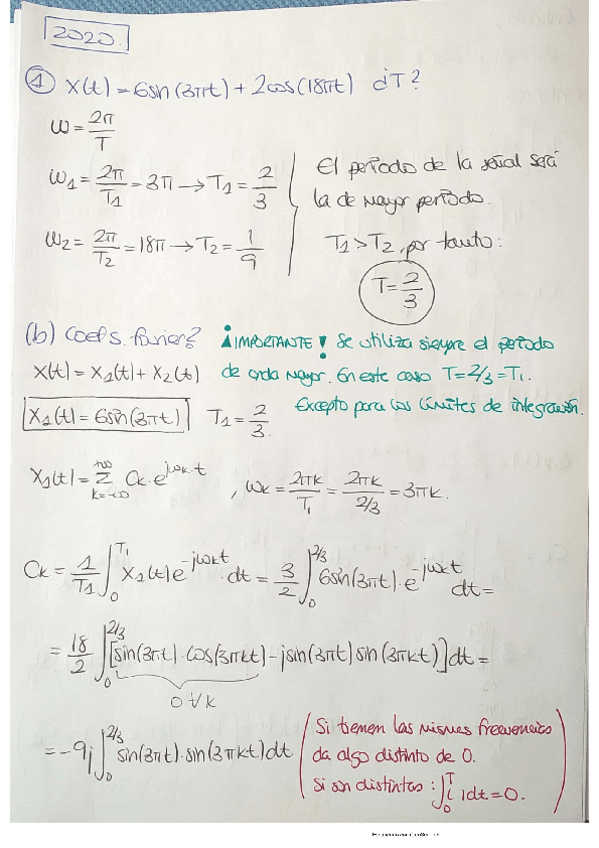 2020.
① x(t) = 6sin(3πt) + 2cos(18πt) ¿T?
ω = 2π/T
ω1 = 2π/T1 = 3π → T1 = 2/3
ω2 = 2π/T2 = 18π → T2 = 1/9
El periodo de la señal será
la de mayor periodo.
T1 > T2, por tanto:
T = 2/3
(b) Coefs. Fourier?
¡IMPORTANTE! Se utiliza siempre el periodo
de onda mayor. En este caso T = 2/3 = T1.
Excepto para los límites de integración.
x(t) = x1(t) + x2(t)
x1(t) = 6sin(3πt) T1 = 2/3.
x1(t) = Σ_{k=-∞}^{+∞} Ck · e^{jωk·t} , ωk = 2πk/T1 = 2πk/(2/3) = 3πk.
Ck = 1/T1 ∫_0^{T1} x1(t) e^{-jωkt} dt = 3/2 ∫_0^{2/3} 6sin(3πt) · e^{-jωkt} dt =
= 18/2 ∫_0^{2/3} [sin(3πt) · cos(3πkt) - jsin(3πt) sin(3πkt)] dt =
0 ∀k
= -9j ∫_0^{2/3} sin(3πt) · sin(3πkt) dt
(Si tienen las mismas frecuencias
da algo distinto de 0.
Si son distintas: ∫_0^T ( )dt = 0.)